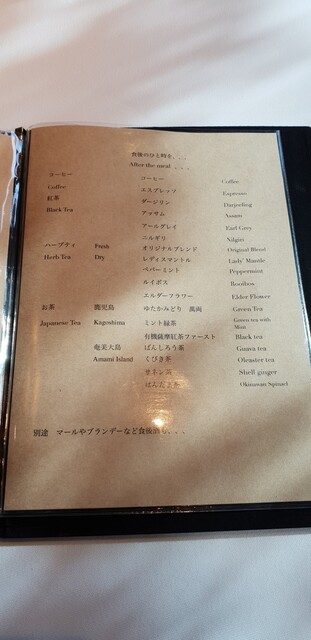 食後のひと時を、、、
After the meal 、、、
コーヒー コーヒー Coffee
Coffee エスプレッソ Espresso
紅茶 ダージリン Darjeeling
Black Tea アッサム Assam
アールグレイ Earl Grey
ニルギリ Nilgiri
ハーブティ Fresh オリジナルブレンド Original Blend
Herb Tea Dry レディスマントル Lady' Mantle
ペパーミント Peppermint
ルイボス Rooibos
エルダーフラワー Elder Flower
お茶 鹿児島 ゆたかみどり 萬両 Green Tea
Japanese Tea Kagoshima ミント緑茶 Green tea with Mint
有機薩摩紅茶ファースト Black tea
奄美大島 ばんしろう茶 Guava tea
Amami Island くび木茶 Oleaster tea
サネン茶 Shell ginger
はんだま茶 Okinawan Spinach
別途 マールやブランデーなど食後酒も、、、